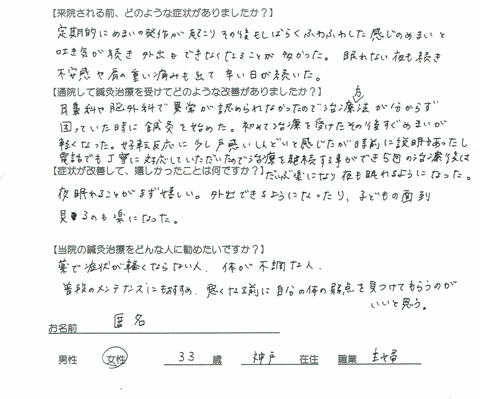 【来院される前、どのような症状がありましたか？】
定期的にめまいの発作が起こりその後もしばらくふわふわした感じのめまいと
吐き気が続き外出もできなくなることが多かった。眠れない夜も続き
不安感や肩の重い痛みも出て辛い日が続いた。
【通院して鍼灸治療を受けてどのような改善がありましたか？】
耳鼻科や脳外科で異常が認められなかったので治療法が分からず
困っていた時に鍼灸を始めた。初めて治療を受けたその後すぐめまいが
軽くなった。好転反応に少し戸惑いしんどいと感じたが事前に説明もあったし
電話でも丁寧に対応していただいたので治療を継続する事ができ5回の治療後は
だいぶ楽になり夜も眠れるようになった。
【症状が改善して、嬉しかったことは何ですか？】
夜眠れることがまず嬉しい。外出できるようになったり、子どもの面倒
見るのも楽になった。
【当院の鍼灸治療をどんな人に勧めたいですか？】
薬で症状が軽くならない人、体が不調な人、
普段のメンテナンスにもおすすめ、悪くなる前に自分の体の弱点を見つけてもらうのが
いいと思う。
お名前 匿名
男性 女性 33 歳 神戸 在住 職業 主婦